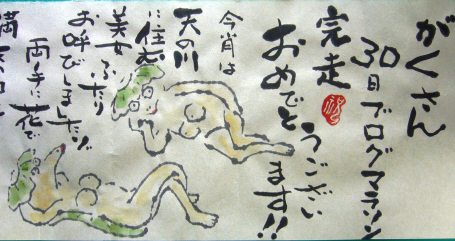 がくさん
30日ブログマラソン
完走
おめでとうございます!!
今宵は
天の川
に住む
美女ふたり
お呼びしましたゾ
両手に花で
満